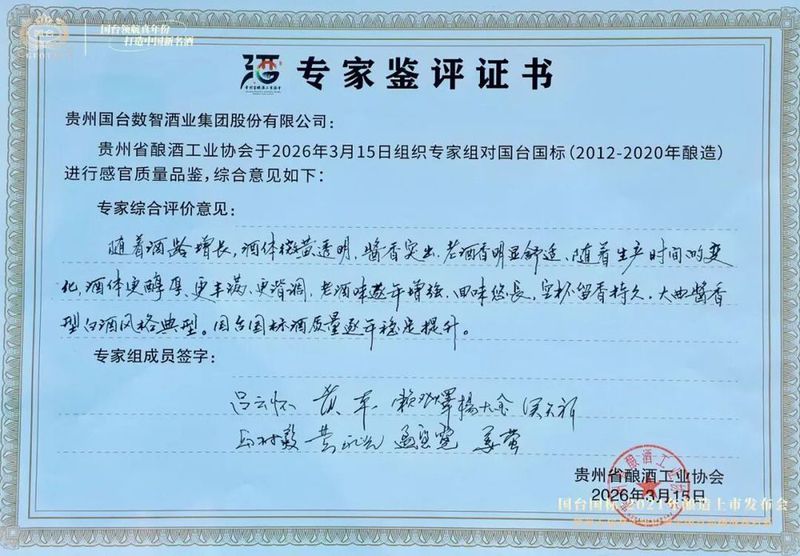 国台领航真年份
打造中国新名酒
专家鉴评证书
贵州国台数智酒业集团股份有限公司：
贵州省酿酒工业协会于2026年3月15日组织专家组对国台国标（2012-2020年酿造）
进行感官质量品鉴，综合意见如下：
专家综合评价意见：
随着酒龄增长，酒体微黄透明，醬香突出、老酒香明显舒适、随着生产时间的变
化，酒体更醇厚、更丰满、更谐调，老酒味逐年增强，回味悠長，空杯留香持久，大曲醬香
型白酒风格典型。国台国标酒质量逐年稳定提升。
专家组成员签字：
吕云怀 黄军 楊大金
贵州省酿酒工业协会
2026年3月15日
国台国标·2021年酿造上市发布会